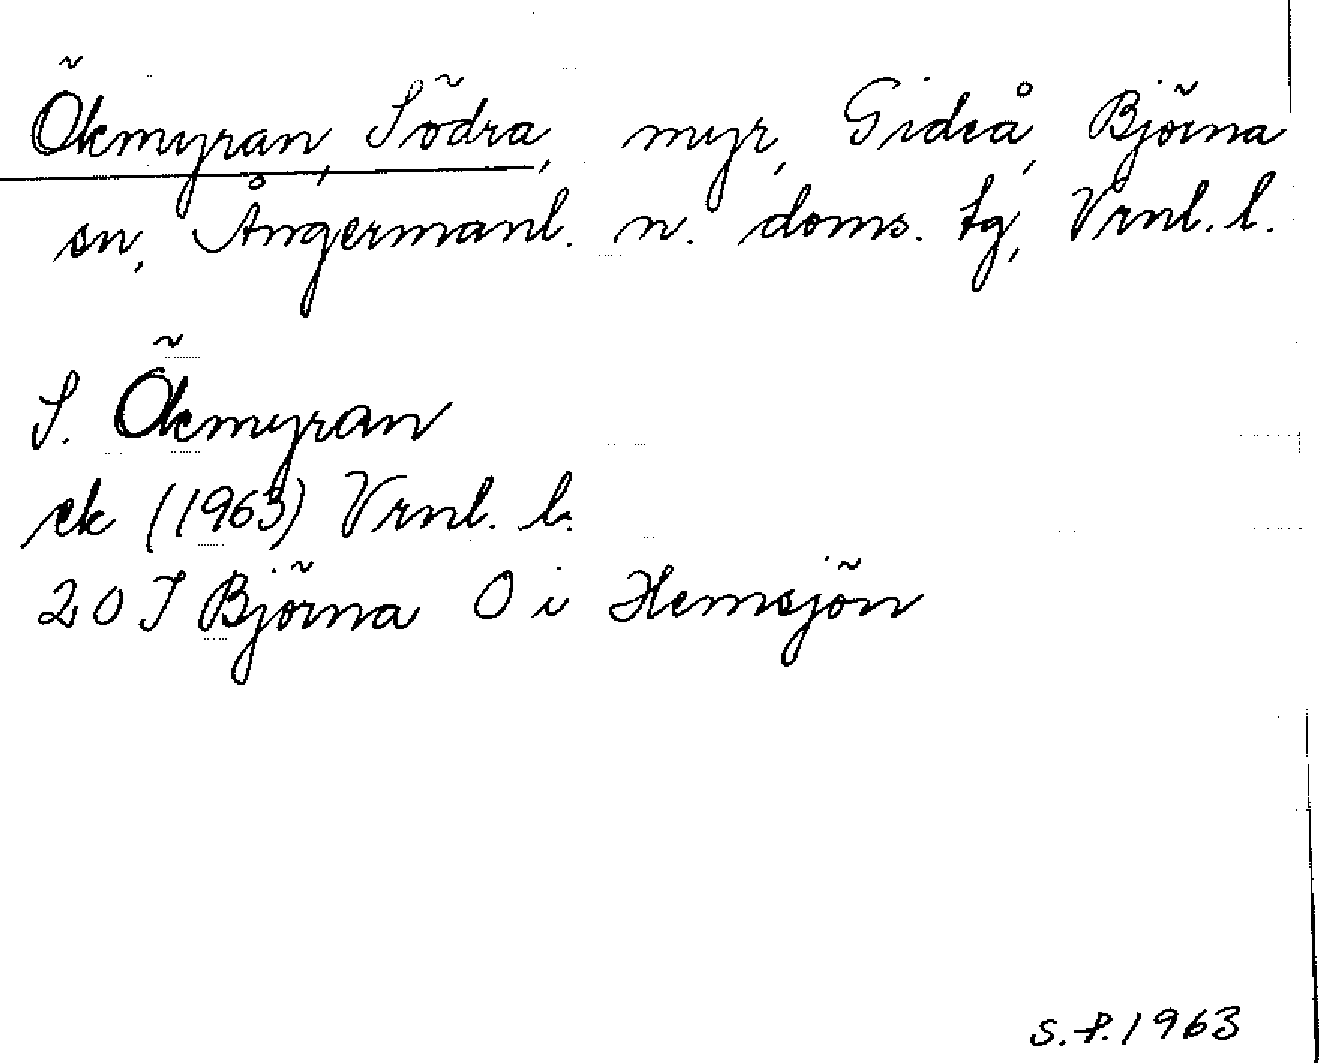 Ökmyran, Södra, myr, Gideå, Björna
sn, Ångermanl. n. doms. tg, Vrnl. l.
S. Ökmyran
ek (1963) Vrnl. l.
20 I Björna O i Hemsjön
S.F. 1963